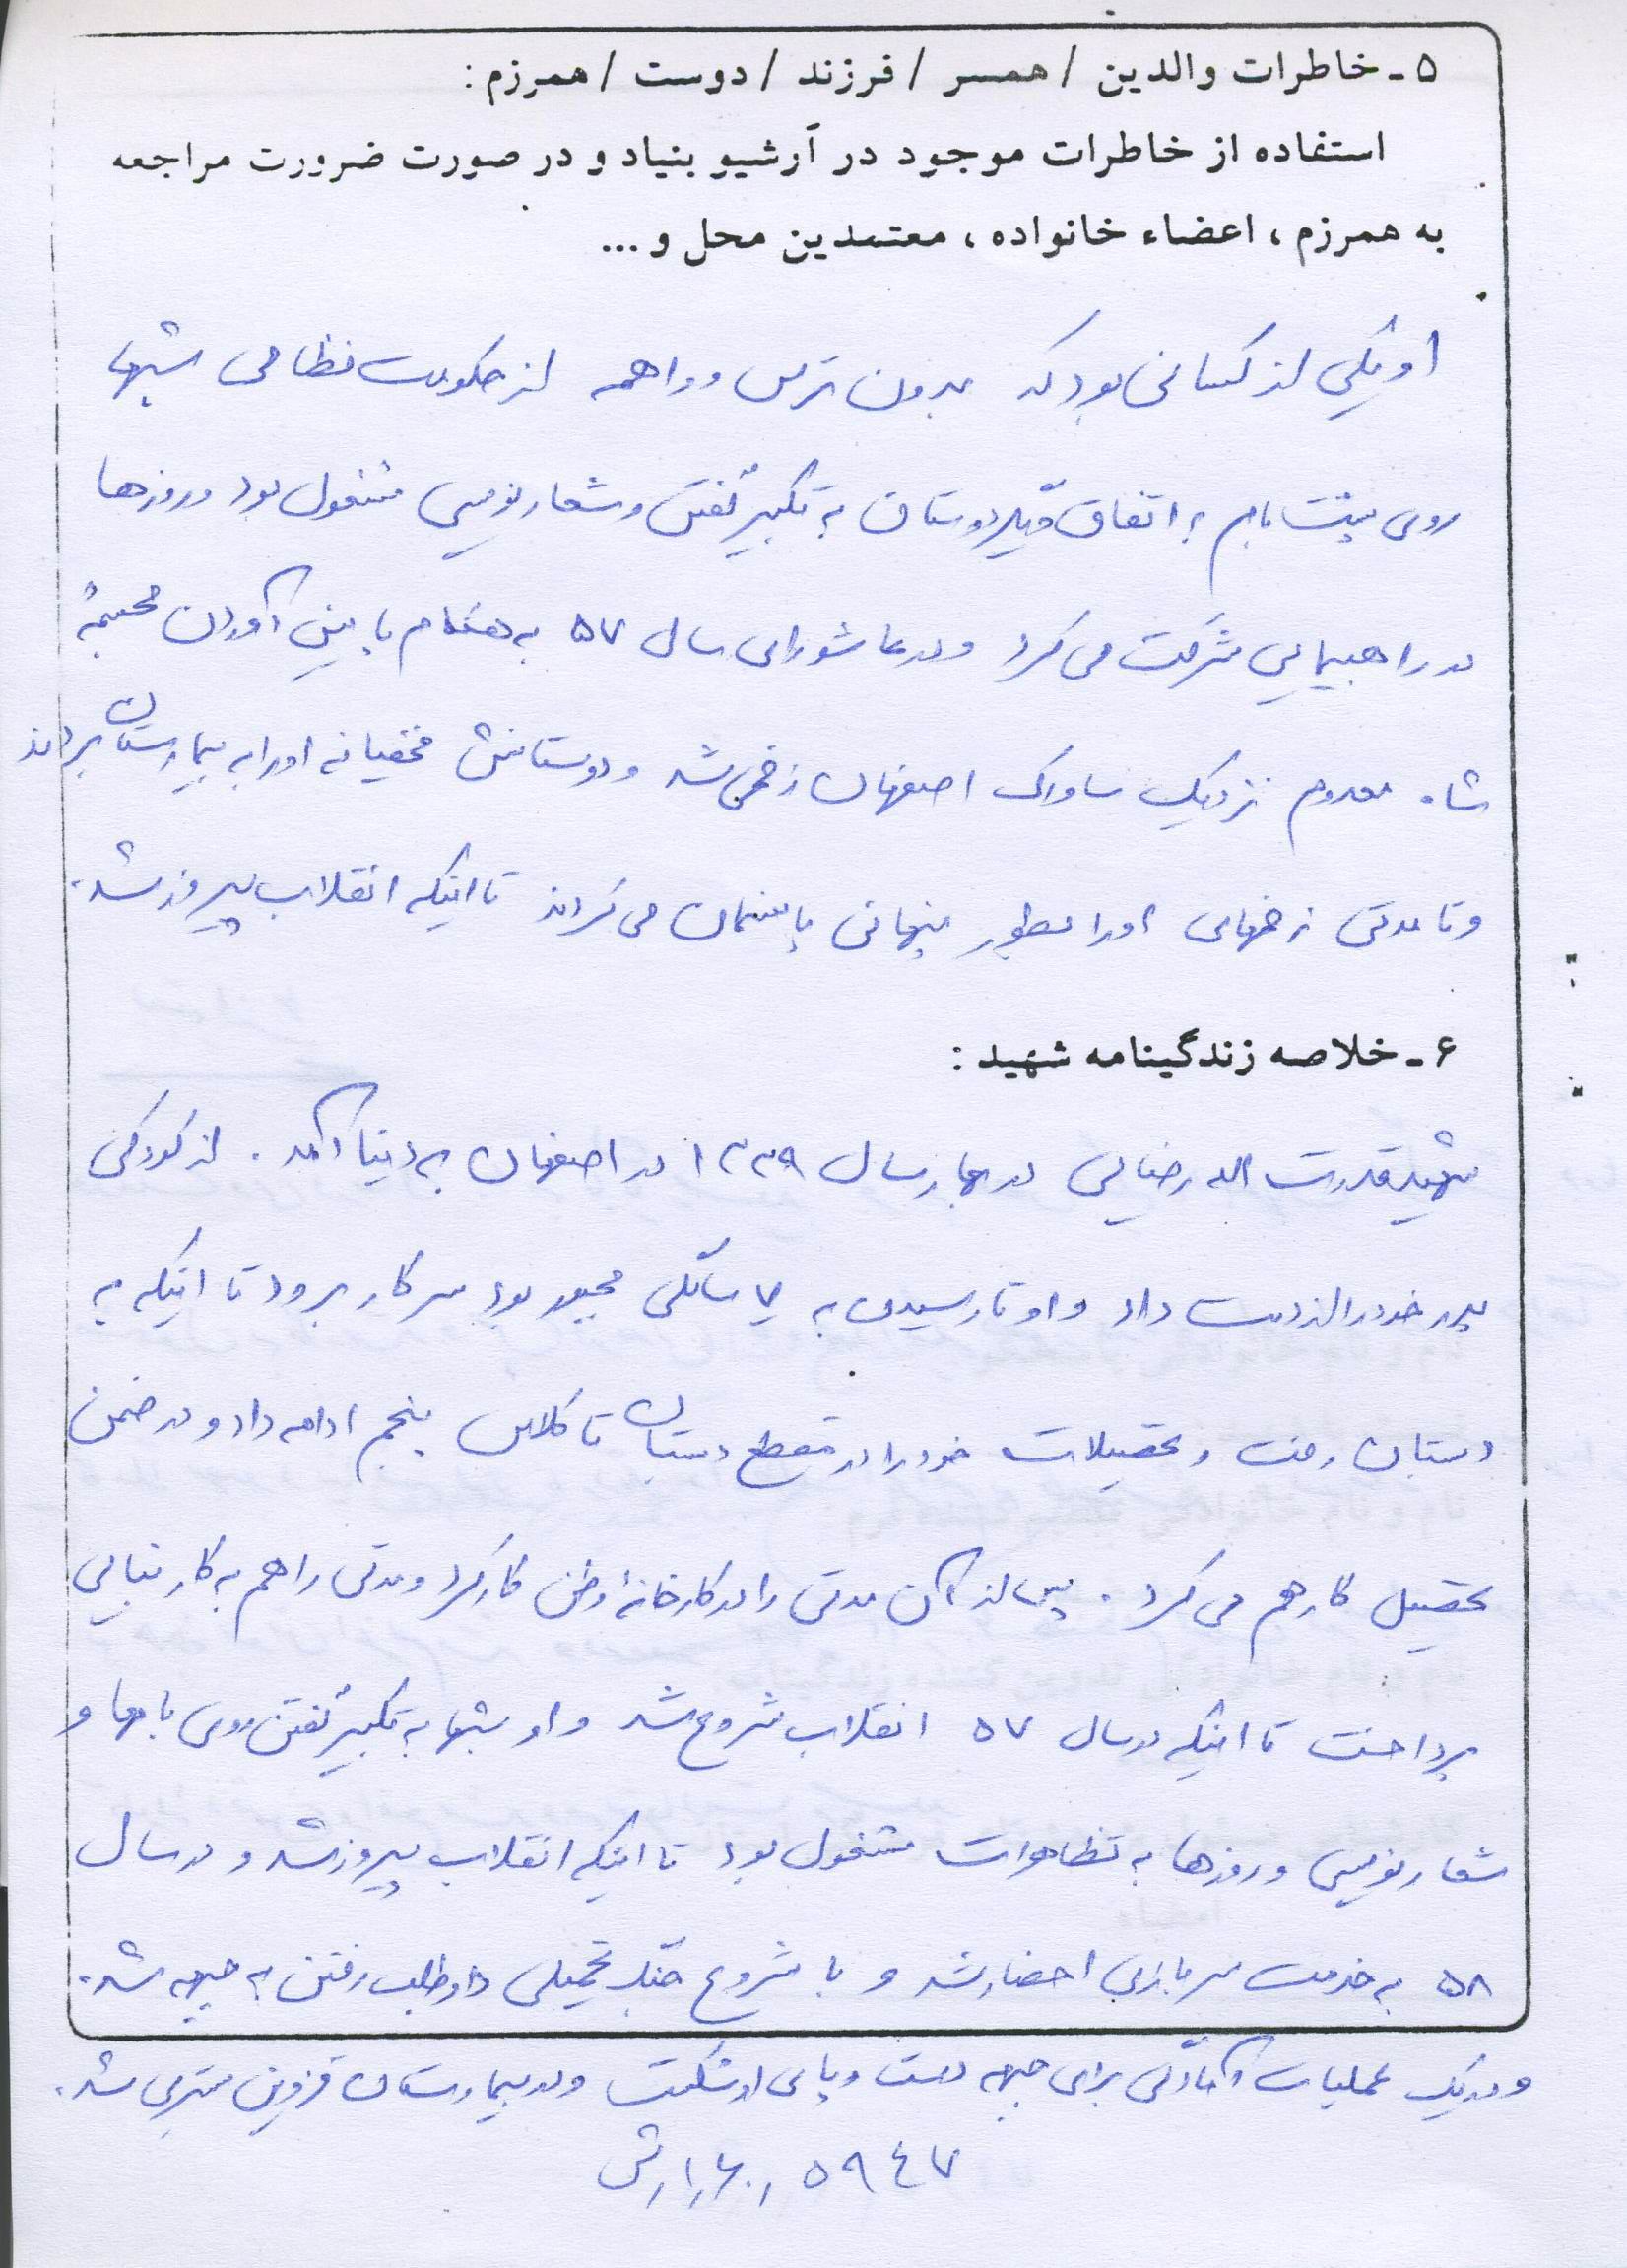 ۵ - خاطرات والدین / همسر / فرزند / دوست / همرزم :
استفاده از خاطرات موجود در آرشیو بنیاد و در صورت ضرورت مراجعه
به همرزم ، اعضاء خانواده ، معتمدین محل و ...
او یکی از کسانی بود که بدون ترس و واهمه از حکومت نظامی شبها
روی پشت بام به اتفاق دیگر دوستان به تکبیر گفتن و شعارنویسی مشغول بود و روزها
در راهپیمایی شرکت می کرد و در عاشورای سال ۵۷ به هنگام پایین آوردن مجسمهٔ
شاه معدوم نزدیک ساواک اصفهان زخمی شد و دوستانش مخفیانه او را به بیمارستان بردند
و تا مدتی زخمهای او را بطور پنهانی پانسمان می کردند تا اینکه انقلاب پیروز شد.
۶ - خلاصه زندگینامه شهید :
شهید قدرت اله رضایی در بهار سال ۱۳۳۹ در اصفهان به دنیا آمد . از کودکی
پدر خود را از دست داد و او تا رسیدن به ۷ سالگی مجبور بود سر کار برود تا اینکه به
دستبان رفت و تحصیلات خود را در مقطع دستبان تا کلاس پنجم ادامه داد و در ضمن
تحصیل کار هم می کرد . پس از آن مدتی را در کارخانهٔ وطن کار کرد و مدتی را هم به کار بنایی
پرداخت تا اینکه در سال ۵۷ انقلاب شروع شد و او شبها به تکبیر گفتن روی بامها و
شعار نویسی و روزها به تظاهرات مشغول بود تا اینکه انقلاب پیروز شد و در سال
۵۸ به خدمت سربازی احضار شد و با شروع جنگ تحمیلی داوطلب رفتن به جبهه شد.
و در یک عملیات آمادگی برای جبهه دست و پای او شکست و در بیمارستان قزوین بستری شد.
۵۹٤۷